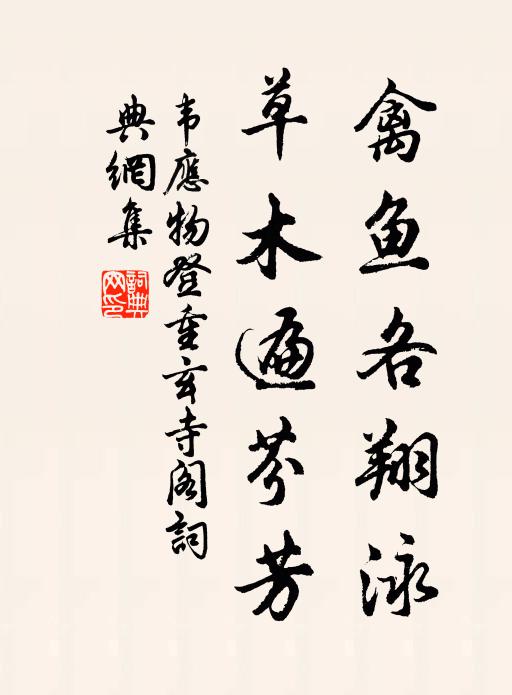 禽鱼各翔泳
草木遍芬芳
韦應物登重玄寺阁詞
典網集
詞典网印